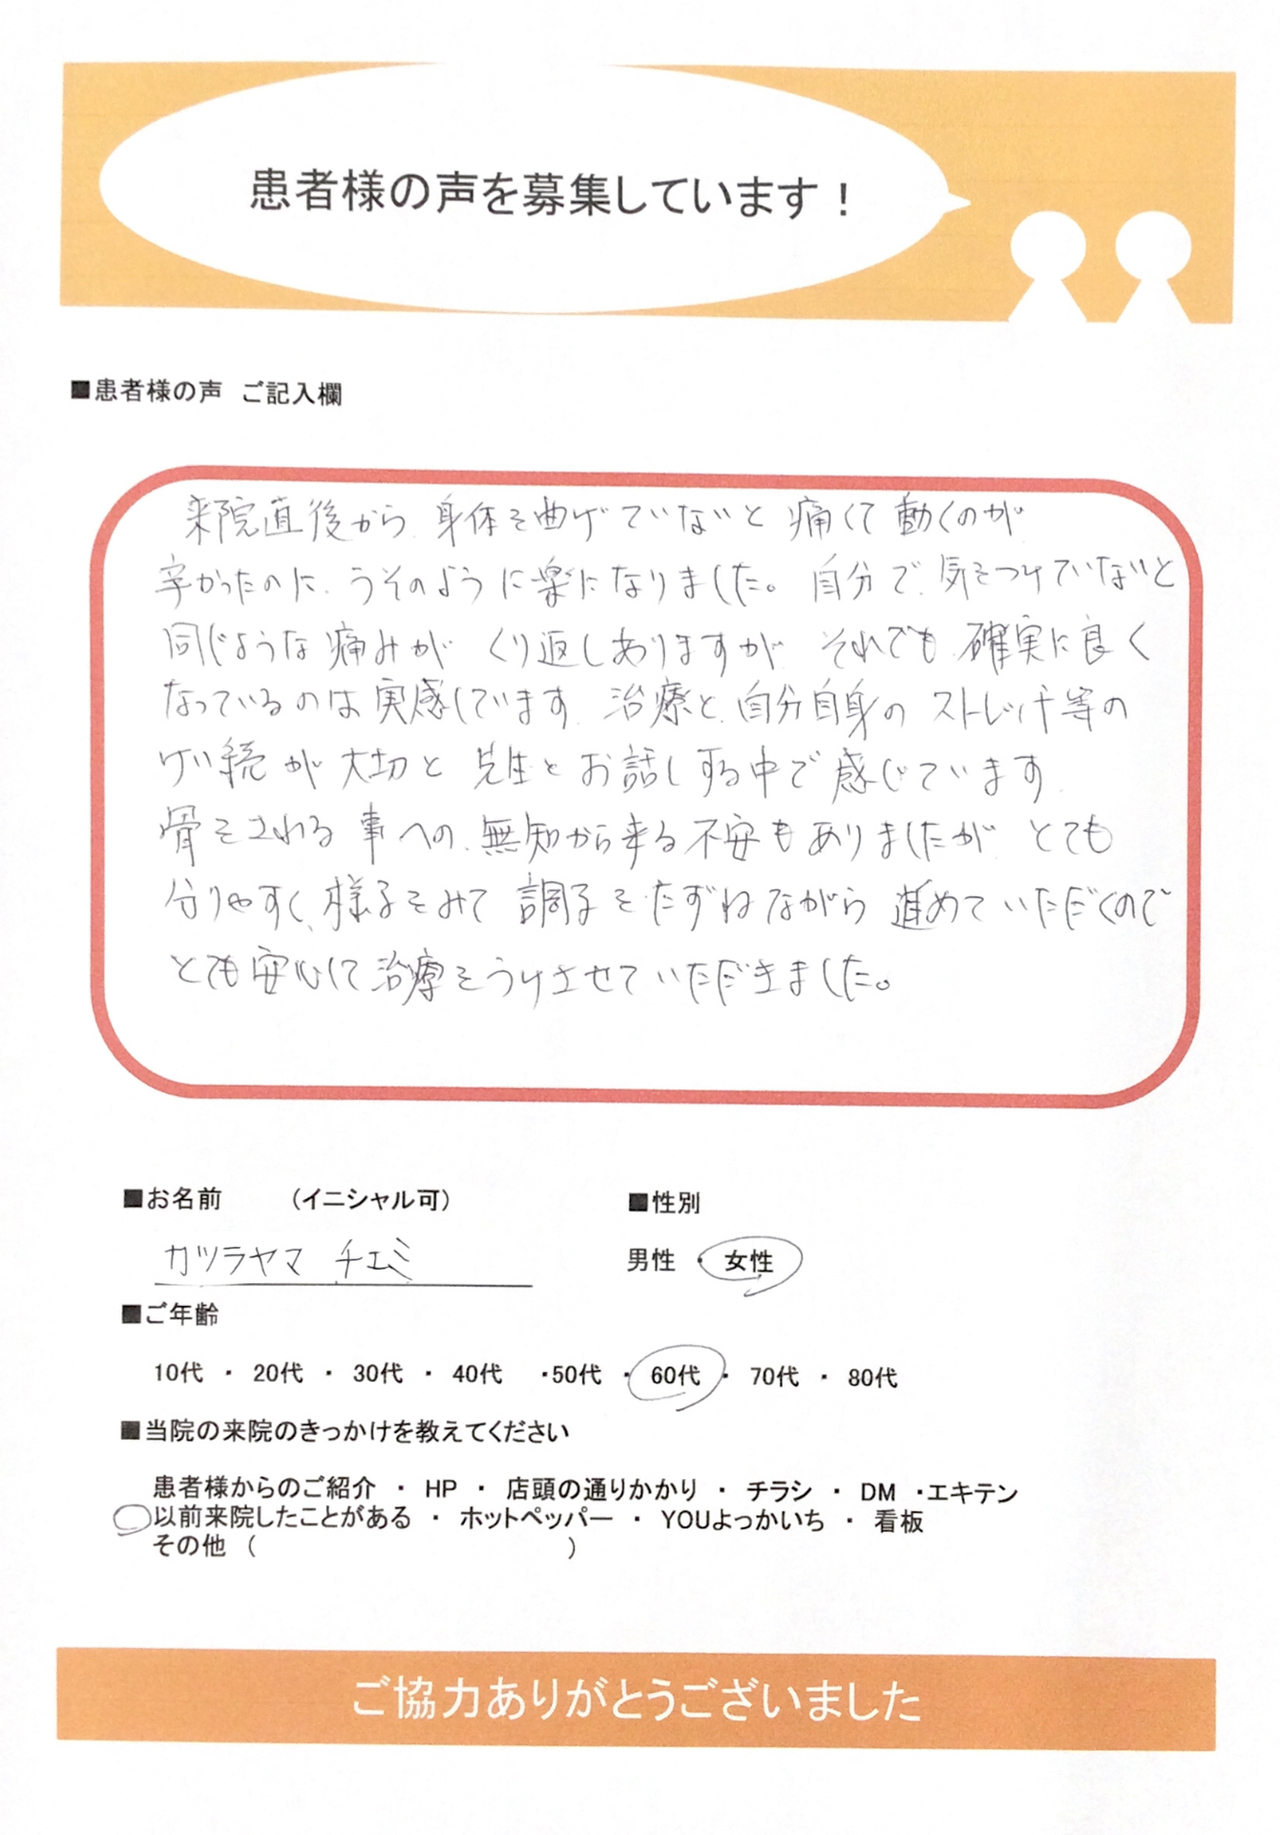 患者様の声を募集しています！
■患者様の声 ご記入欄
来院直後から 身体を曲げていないと 痛くて動くのが
辛かったのに、うそのように楽になりました。自分で気をつけていないと
同じような痛みが くり返しありますが それでも確実に良く
なっているのは実感しています。治療と、自分自身の ストレッチ等の
けい続が大切と 先生とお話しする中で感じています。
骨をされる事への、無知から来る不安もありましたが とても
分りやすく、様子をみて 調子をたずねながら 進めていただくので
とても安心して治療をうけさせていただきました。
■お名前 （イニシャル可） ■性別
カツラヤマ チエミ 男性 ・ 女性
■ご年齢
10代 ・ 20代 ・ 30代 ・ 40代 ・50代 ・ 60代 ・ 70代 ・ 80代
■当院の来院のきっかけを教えてください
患者様からのご紹介 ・ HP ・ 店頭の通りかかり ・ チラシ ・ DM ・エキテン
以前来院したことがある ・ ホットペッパー ・ YOUよっかいち ・ 看板
その他 （ ）
ご協力ありがとうございました